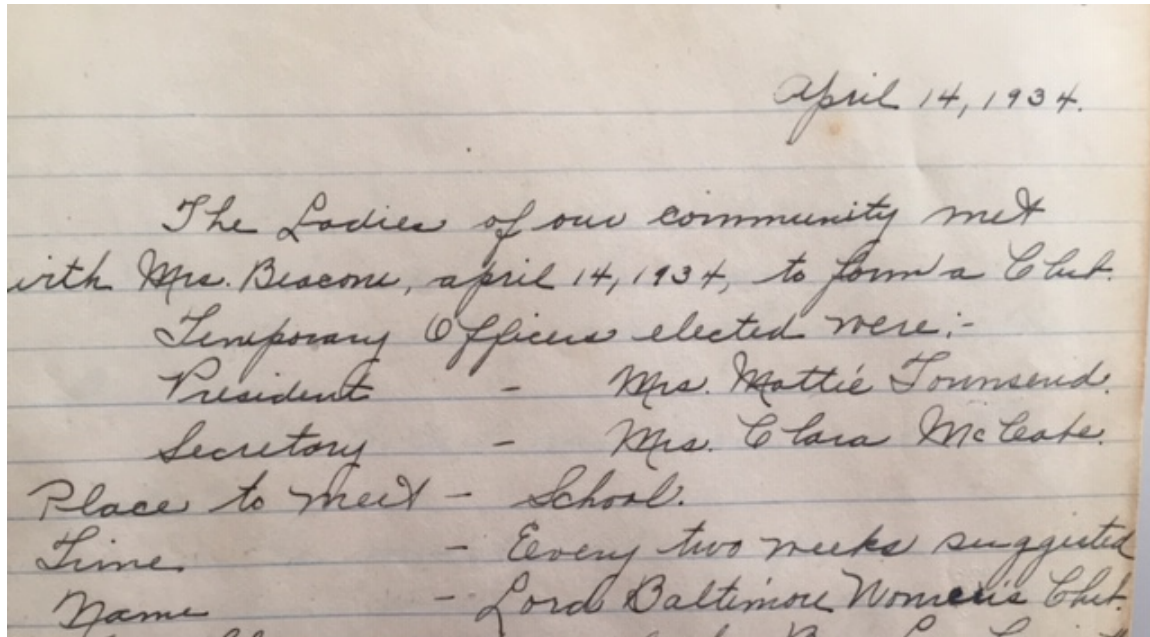 April 14, 1934.
The Ladies of our community met
with Mrs. Beacom, april 14, 1934, to form a Club.
Temporary Officers elected were:-
President - Mrs. Mattie Townsend.
Secretary - Mrs. Clara McCabe.
Place to meet - School.
Time - Every two weeks suggested
Name - Lord Baltimore Women's Club.